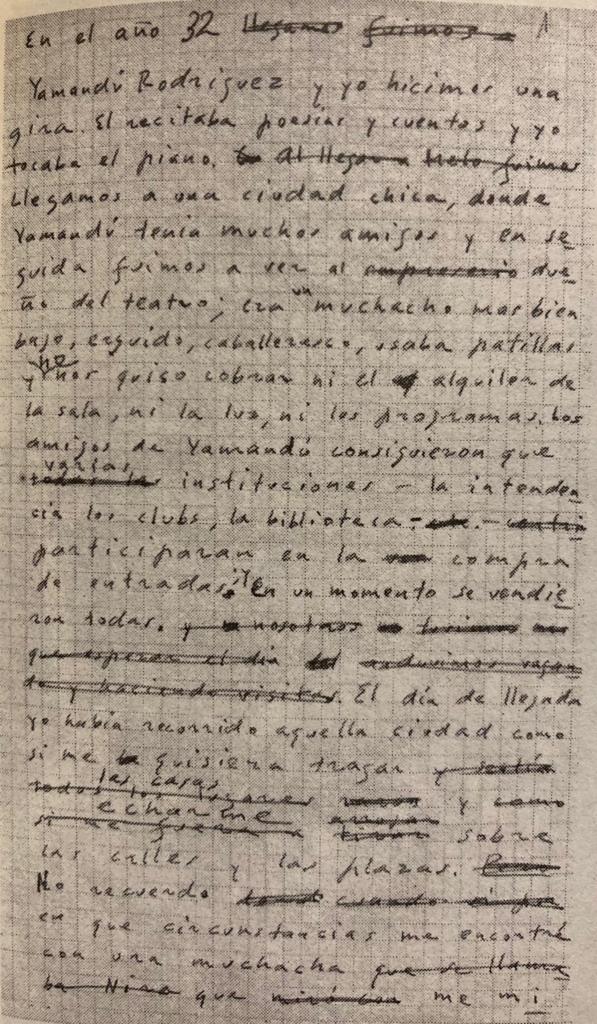 En el año 32 llegamos fuimos 1
Yamandú Rodríguez y yo hicimos una
gira. El recitaba poesías y cuentos y yo
tocaba el piano. Al llegar a Melo fuimos
Llegamos a una ciudad chica, donde
Yamandú tenía muchos amigos y en se
guida fuimos a ver al empresario due
ño del teatro; era un muchacho mas bien
bajo, erguido, caballeresco, usaba patillas
y no nos quiso cobrar ni el alquiler de
la sala, ni la luz, ni los programas. Los
amigos de Yamandú consiguieron que
varias
todas las instituciones – la intenden
cia los clubs, la biblioteca – etc. –
participaran en la compra
de entradas; y en un momento se vendie
ron todas. y a nosotros tuvimos
que esperar el día anduvimos vagan
do y haciendo visitas. El día de llegada
yo había recorrido aquella ciudad como
si me quisiera tragar y sentía
las casas
todos los lugares y como
echarme arrojar
si me fuera a tirar sobre
las calles y las plazas. Pero
No recuerdo cuando
en que circunstancias me encontré
con una muchacha que se llama
ba Nina que miró con me mi